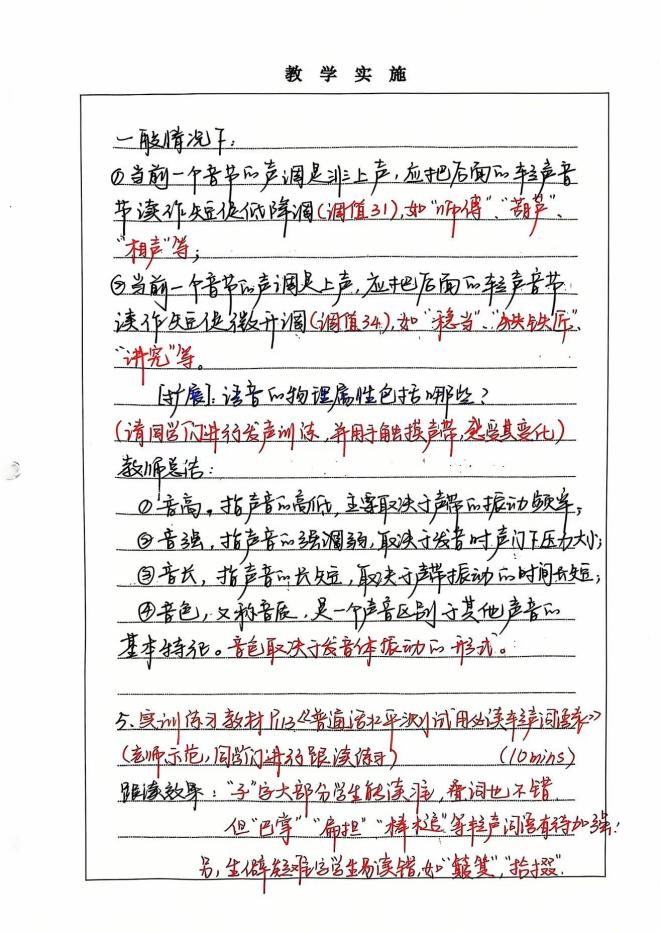 教 学 实 施
一般情况下:
①当前一个音节的声调是非上声,应把后面的轻声音
节读作短促低降调(调值31),如“师傅”、“葫芦”、
“相声”等;
②当前一个音节的声调是上声,应把后面的轻声音节
读作短促微升调(调值34),如“稳当”、“铁匠”、
“讲究”等。
[扩展]:语音的物理属性包括哪些?
(请同学们进行发声训练,并用手触摸声带,感受其变化)
教师总结:
①音高,指声音的高低,主要取决于声带的振动频率;
②音强,指声音的强调弱,取决于发音时声门下压力大小;
③音长,指声音的长短,取决于声带振动的时间长短;
④音色,又称音质,是一个声音区别于其他声音的
基本特征。音色取决于发音体振动的形式。
5、实训练习教材P113《普通话水平测试用必读轻声词语表》
(老师示范,同学们进行跟读练习) (10mins)
跟读效果:“子”字大部分学生能读准,叠词也不错
但“巴掌”“扁担”“棒槌”等轻声词语有待加强!
另,生僻疑难字学生易读错,如“ ”,“拾掇”.